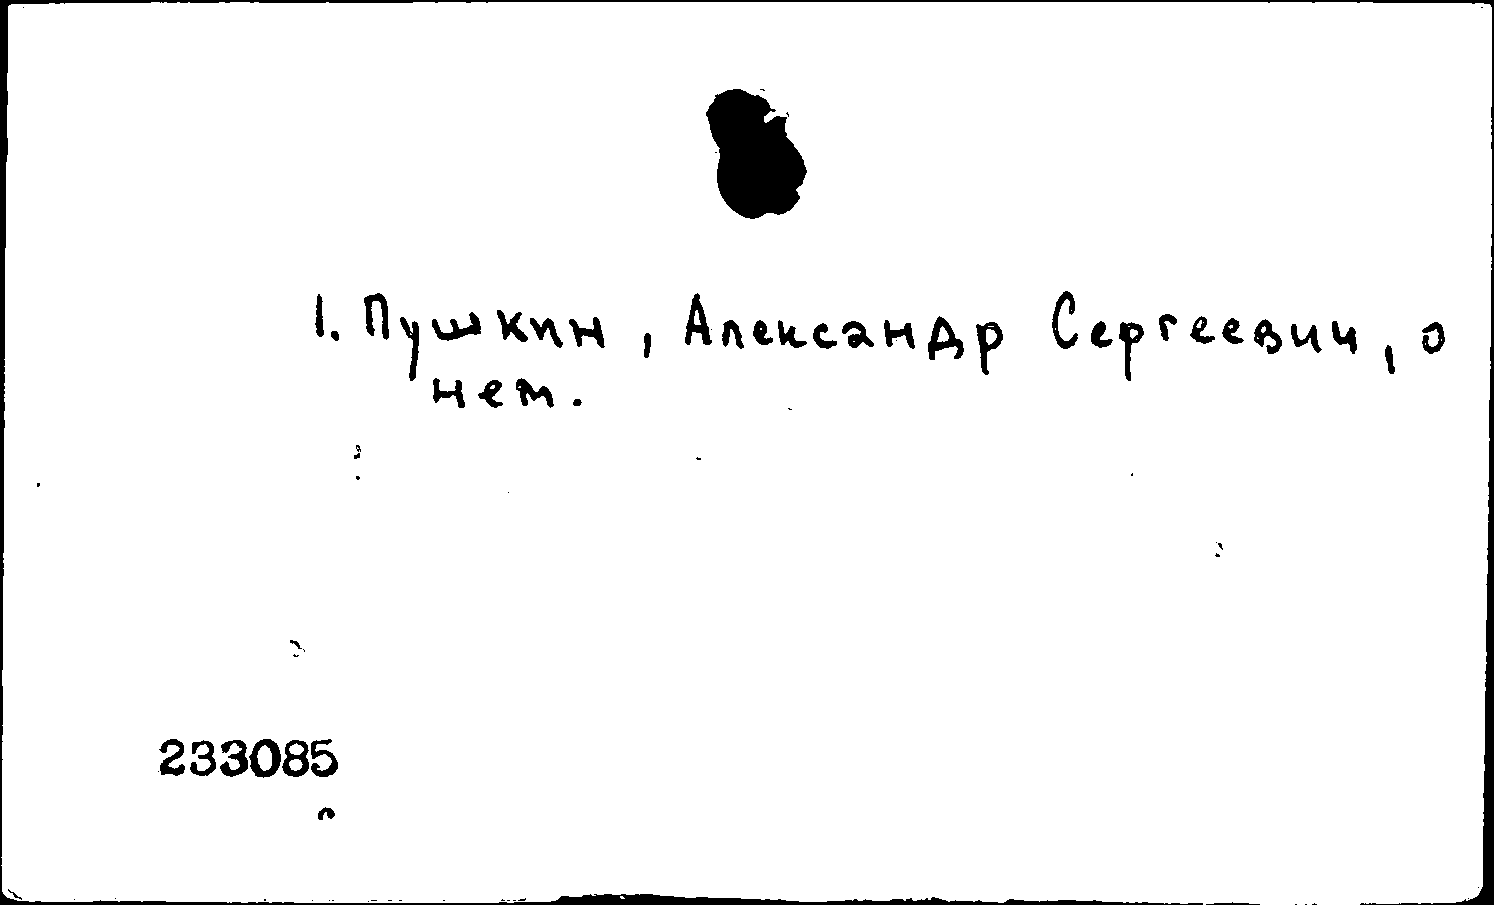 1. Пушкин, Александр Сергеевич, о
нем.
233085